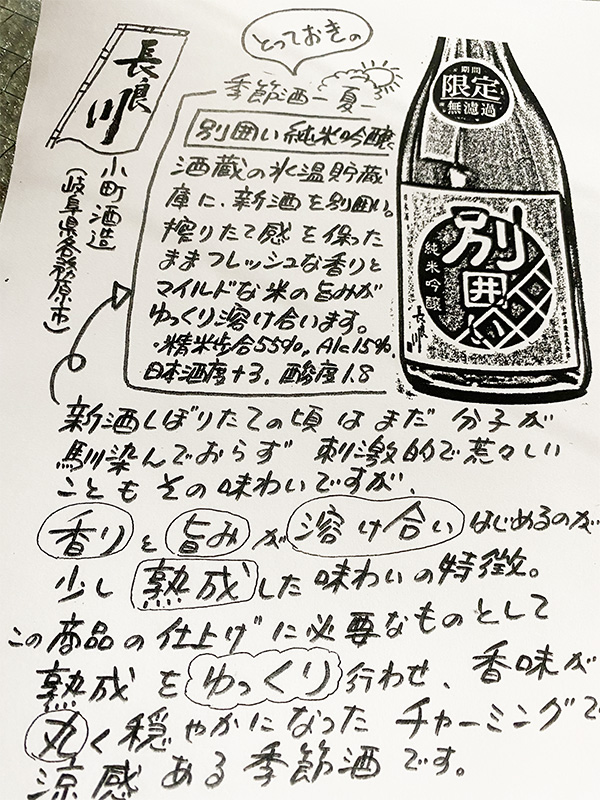 長良川
小町酒造
(岐阜県各務原市)
とっておきの
季節酒ー夏ー
別囲い純米吟醸
酒蔵の氷温貯蔵
庫に、新酒を別囲い。
搾りたて感を保った
ままフレッシュな香りと
マイルドな米の旨みが
ゆっくり溶け合います。
・精米歩合55%, Alc15%,
日本酒度+3, 酸度1.8
期間
限定
無濾過
別囲い
純米吟醸
長良川
新酒しぼりたての頃はまだ分子が
馴染んでおらず刺激的で荒々しい
こともその味わいですが、
香りと旨みが溶け合いはじめるのが
少し熟成した味わいの特徴。
この商品の仕上げに必要なものとして
熟成をゆっくり行わせ、香味が
丸く穏やかになったチャーミングで
涼感ある季節酒です。